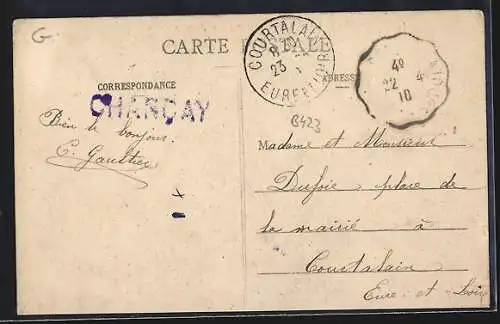 G
CARTE POSTALE
CORRESPONDANCE
CHANÇAY
Bien le bonjour
C. Gaultier
COURTALAIN
23
EURE ET LOIR
ADRESSE
4º
22 4
10
B423
Madame et Monsieur
Dufoie place de
la mairié à
Courtalain
Eure et Loir